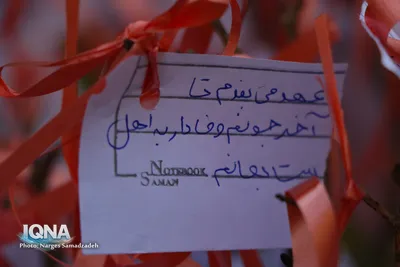 عهد می بندم تا
آخر جونم وفادار به اهل
بیت بمانم
NOTEBOOK
SAMAN
IQNA
Photo: Narges Samadzadeh
IQNA